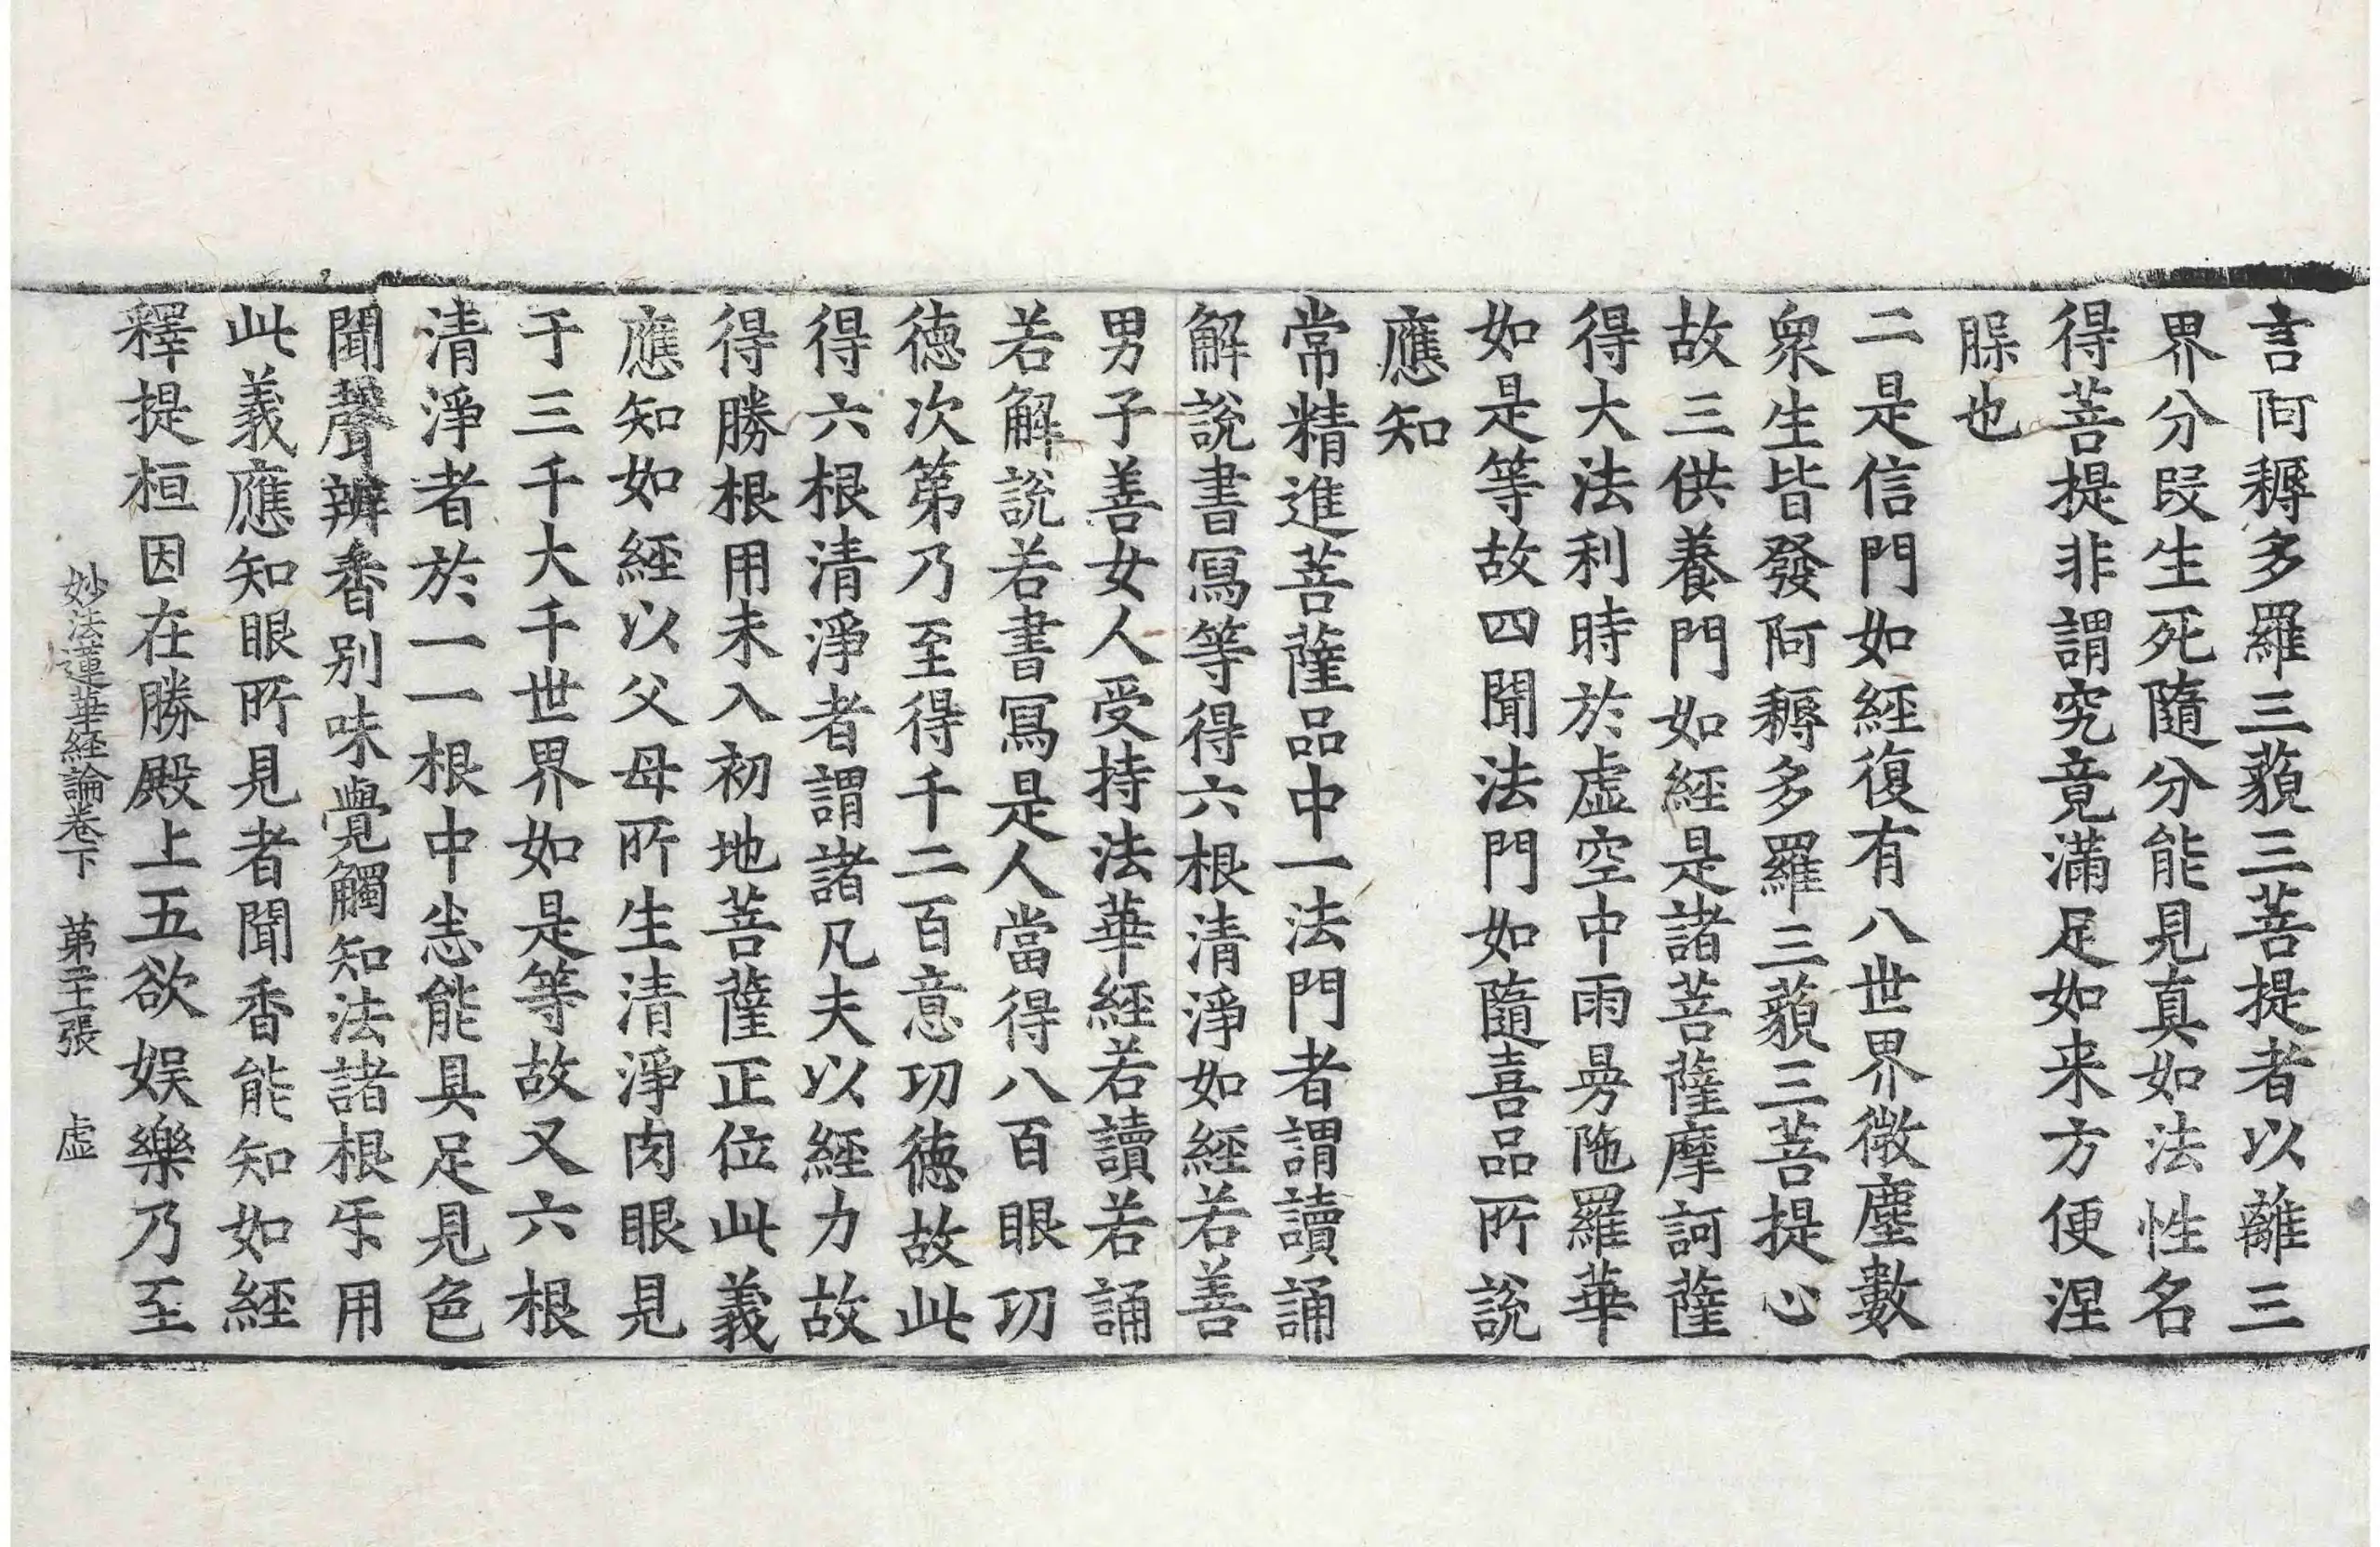 言阿耨多羅三藐三菩提者以離三
界分段生死隨分能見真如法性名
得菩提非謂究竟滿足如来方便涅
槃也
二是信門如經復有八世界微塵數
衆生皆發阿耨多羅三藐三菩提心
故三供養門如經是諸菩薩摩訶薩
得大法利時於虛空中雨曼陁羅華
如是等故四聞法門如隨喜品所說
應知
常精進菩薩品中一法門者謂讀誦
解說書冩等得六根清淨如經若善
男子善女人受持法華經若讀若誦
若解說若書冩是人當得八百眼功
德次第乃至得千二百意功德故此
得六根清淨者謂諸凡夫以經力故
得勝根用未入初地菩薩正位此義
應知如經以父母所生清淨肉眼見
于三千大千世界如是等故又六根
清淨者於一一根中悉能具足見色
聞聲辨香别味覺觸知法諸根㸦用
此義應知眼所見者聞香能知如經
釋提桓因在勝殿上五欲娛樂乃至
妙法蓮華經論卷下 第二十一張 虛